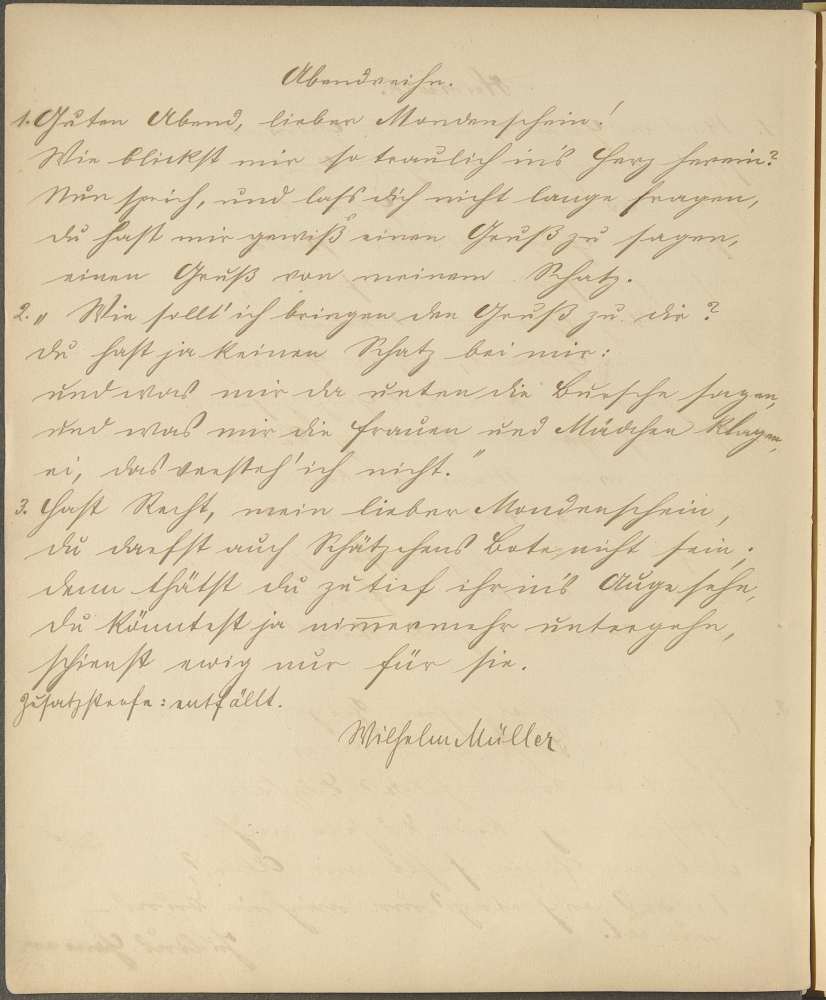 Abendreihn.
1. Guten Abend, lieber Mondenschein!
Wie blickst mir so traulich in's Herz herein?
Nun sprich, und lass dich nicht lange fragen,
du hast mir gewiß einen Gruß zu sagen,
einen Gruß von meinem Schatz.
2. „ Wie sollt' ich bringen den Gruß zu dir?
Du hast ja keinen Schatz bei mir:
und was mir da unten die Bursche sagen,
und was mir die Frauen und Mädchen klagen,
ei, das versteh' ich nicht."
3. Hast Recht, mein lieber Mondenschein,
du darfst auch Schätzchens Bote nicht sein;
denn thätst du zu tief ihr in's Auge sehn,
du könntest ja nim̅ermehr untergehn,
schienst ewig nur für sie.
Zusatzstrofe: entfällt.
Wilhelm Müller